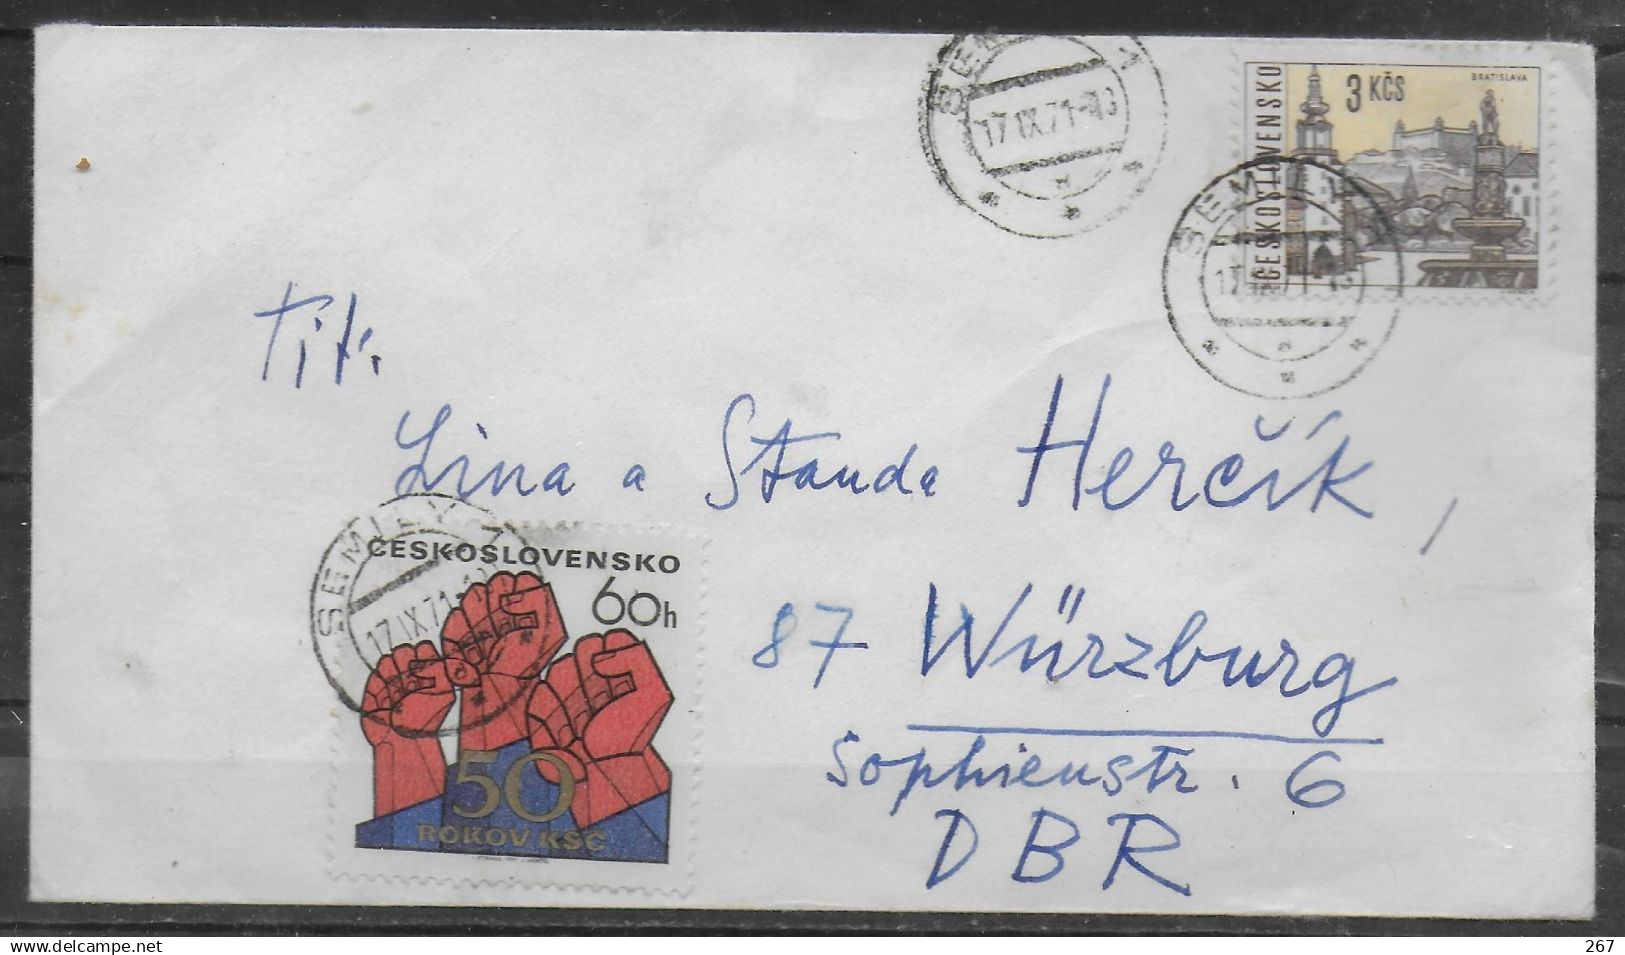 SEMILY 1
17.IX.71-18
ČESKOSLOVENSKO
3 KČS
BRATISLAVA
SEMILY 1
Tit.
Lina a Standa Herčík,
SEMILY 1
17.IX.71
ČESKOSLOVENSKO
60h
50
ROKOV KSČ
87 Würzburg
Sophienstr. 6
DBR
www.delcampe.net
267